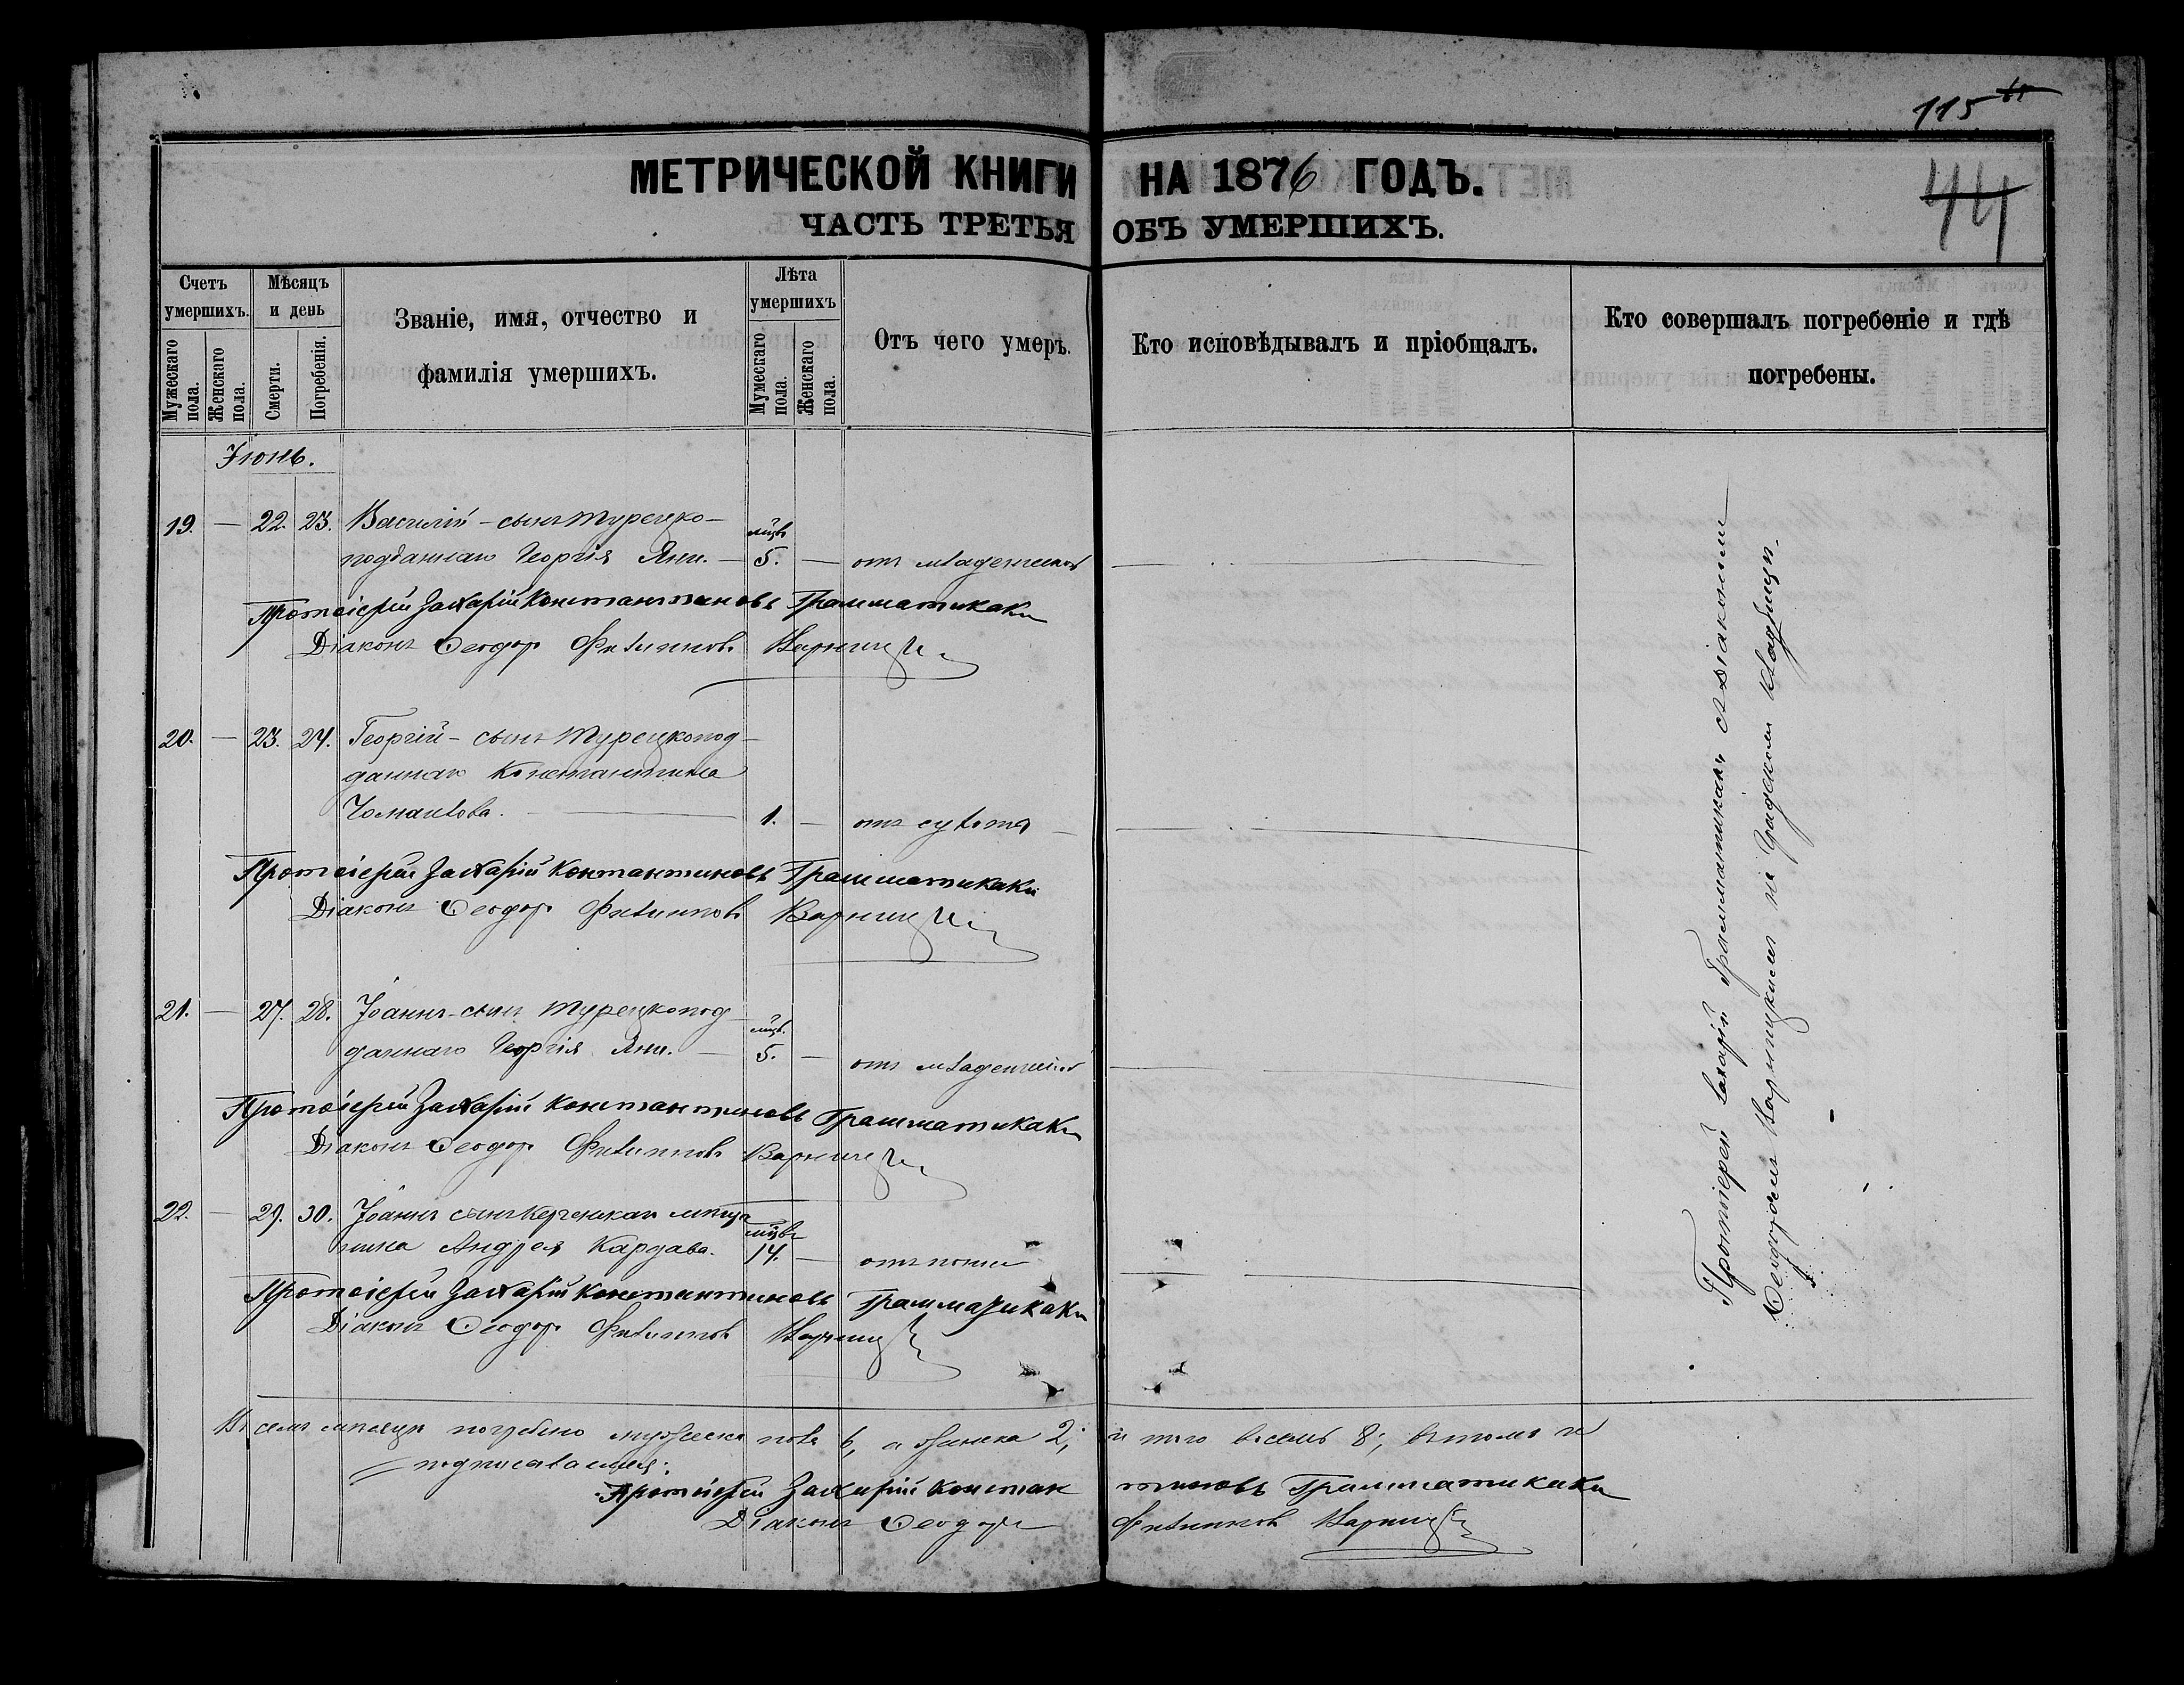 115
44
МЕТРИЧЕСКОЙ КНИГИ НА 1876 ГОДЪ.
ЧАСТЬ ТРЕТЬЯ ОБЪ УМЕРШИХЪ.
Счетъ умершихъ.
Мужескаго пола.
Женскаго пола.
Мѣсяцъ и день
Смерти.
Погребенія.
Званіе, имя, отчество и
фамилія умершихъ.
Лѣта умершихъ
Мужескаго пола.
Женскаго пола.
Отъ чего умеръ.
Кто исповѣдывалъ и пріобщалъ.
Кто совершалъ погребеніе и гдѣ
погребены.
Іюнь.
19. — 22. 23. Василій - сынъ турецко-
подданнаго Георгія Яни. — мѣсц. 5. — отъ младенческой
Протоіерей Захарій Константиновъ Грамматикаки
Діаконъ Ѳеодоръ Филипповъ Варницкій
20. — 23. 24. Георгій - сынъ турецкопод-
даннаго Константина
1. — отъ
Протоіерей Захарій Константиновъ Грамматикаки
Діаконъ Ѳеодоръ Филипповъ Варницкій
21. — 27. 28. Іоаннъ - сынъ турецкопод-
даннаго Георгія Яни. — мѣсц. 5. — отъ младенческой
Протоіерей Захарій Константиновъ Грамматикаки
Діаконъ Ѳеодоръ Филипповъ Варницкій
22. — 29. 30. Іоаннъ сынъ керченскаго мѣща-
нина Андрея Кардава. 14. — отъ
Протоіерей Захарій Константиновъ Грамматикаки
Діаконъ Ѳеодоръ Филипповъ Варницкій
Протоіерей Захарій Грамматикаки съ діакономъ
Ѳеодоромъ Варницкимъ на градскомъ кладбищѣ.
Въ семъ мѣсяцѣ погребено мужеска пола 6, а женска 2, и того восемь 8; въ томъ и
подписаваемся:
Протоіерей Захарій Константиновъ Грамматикаки
Діаконъ Ѳеодоръ Филипповъ Варницкій